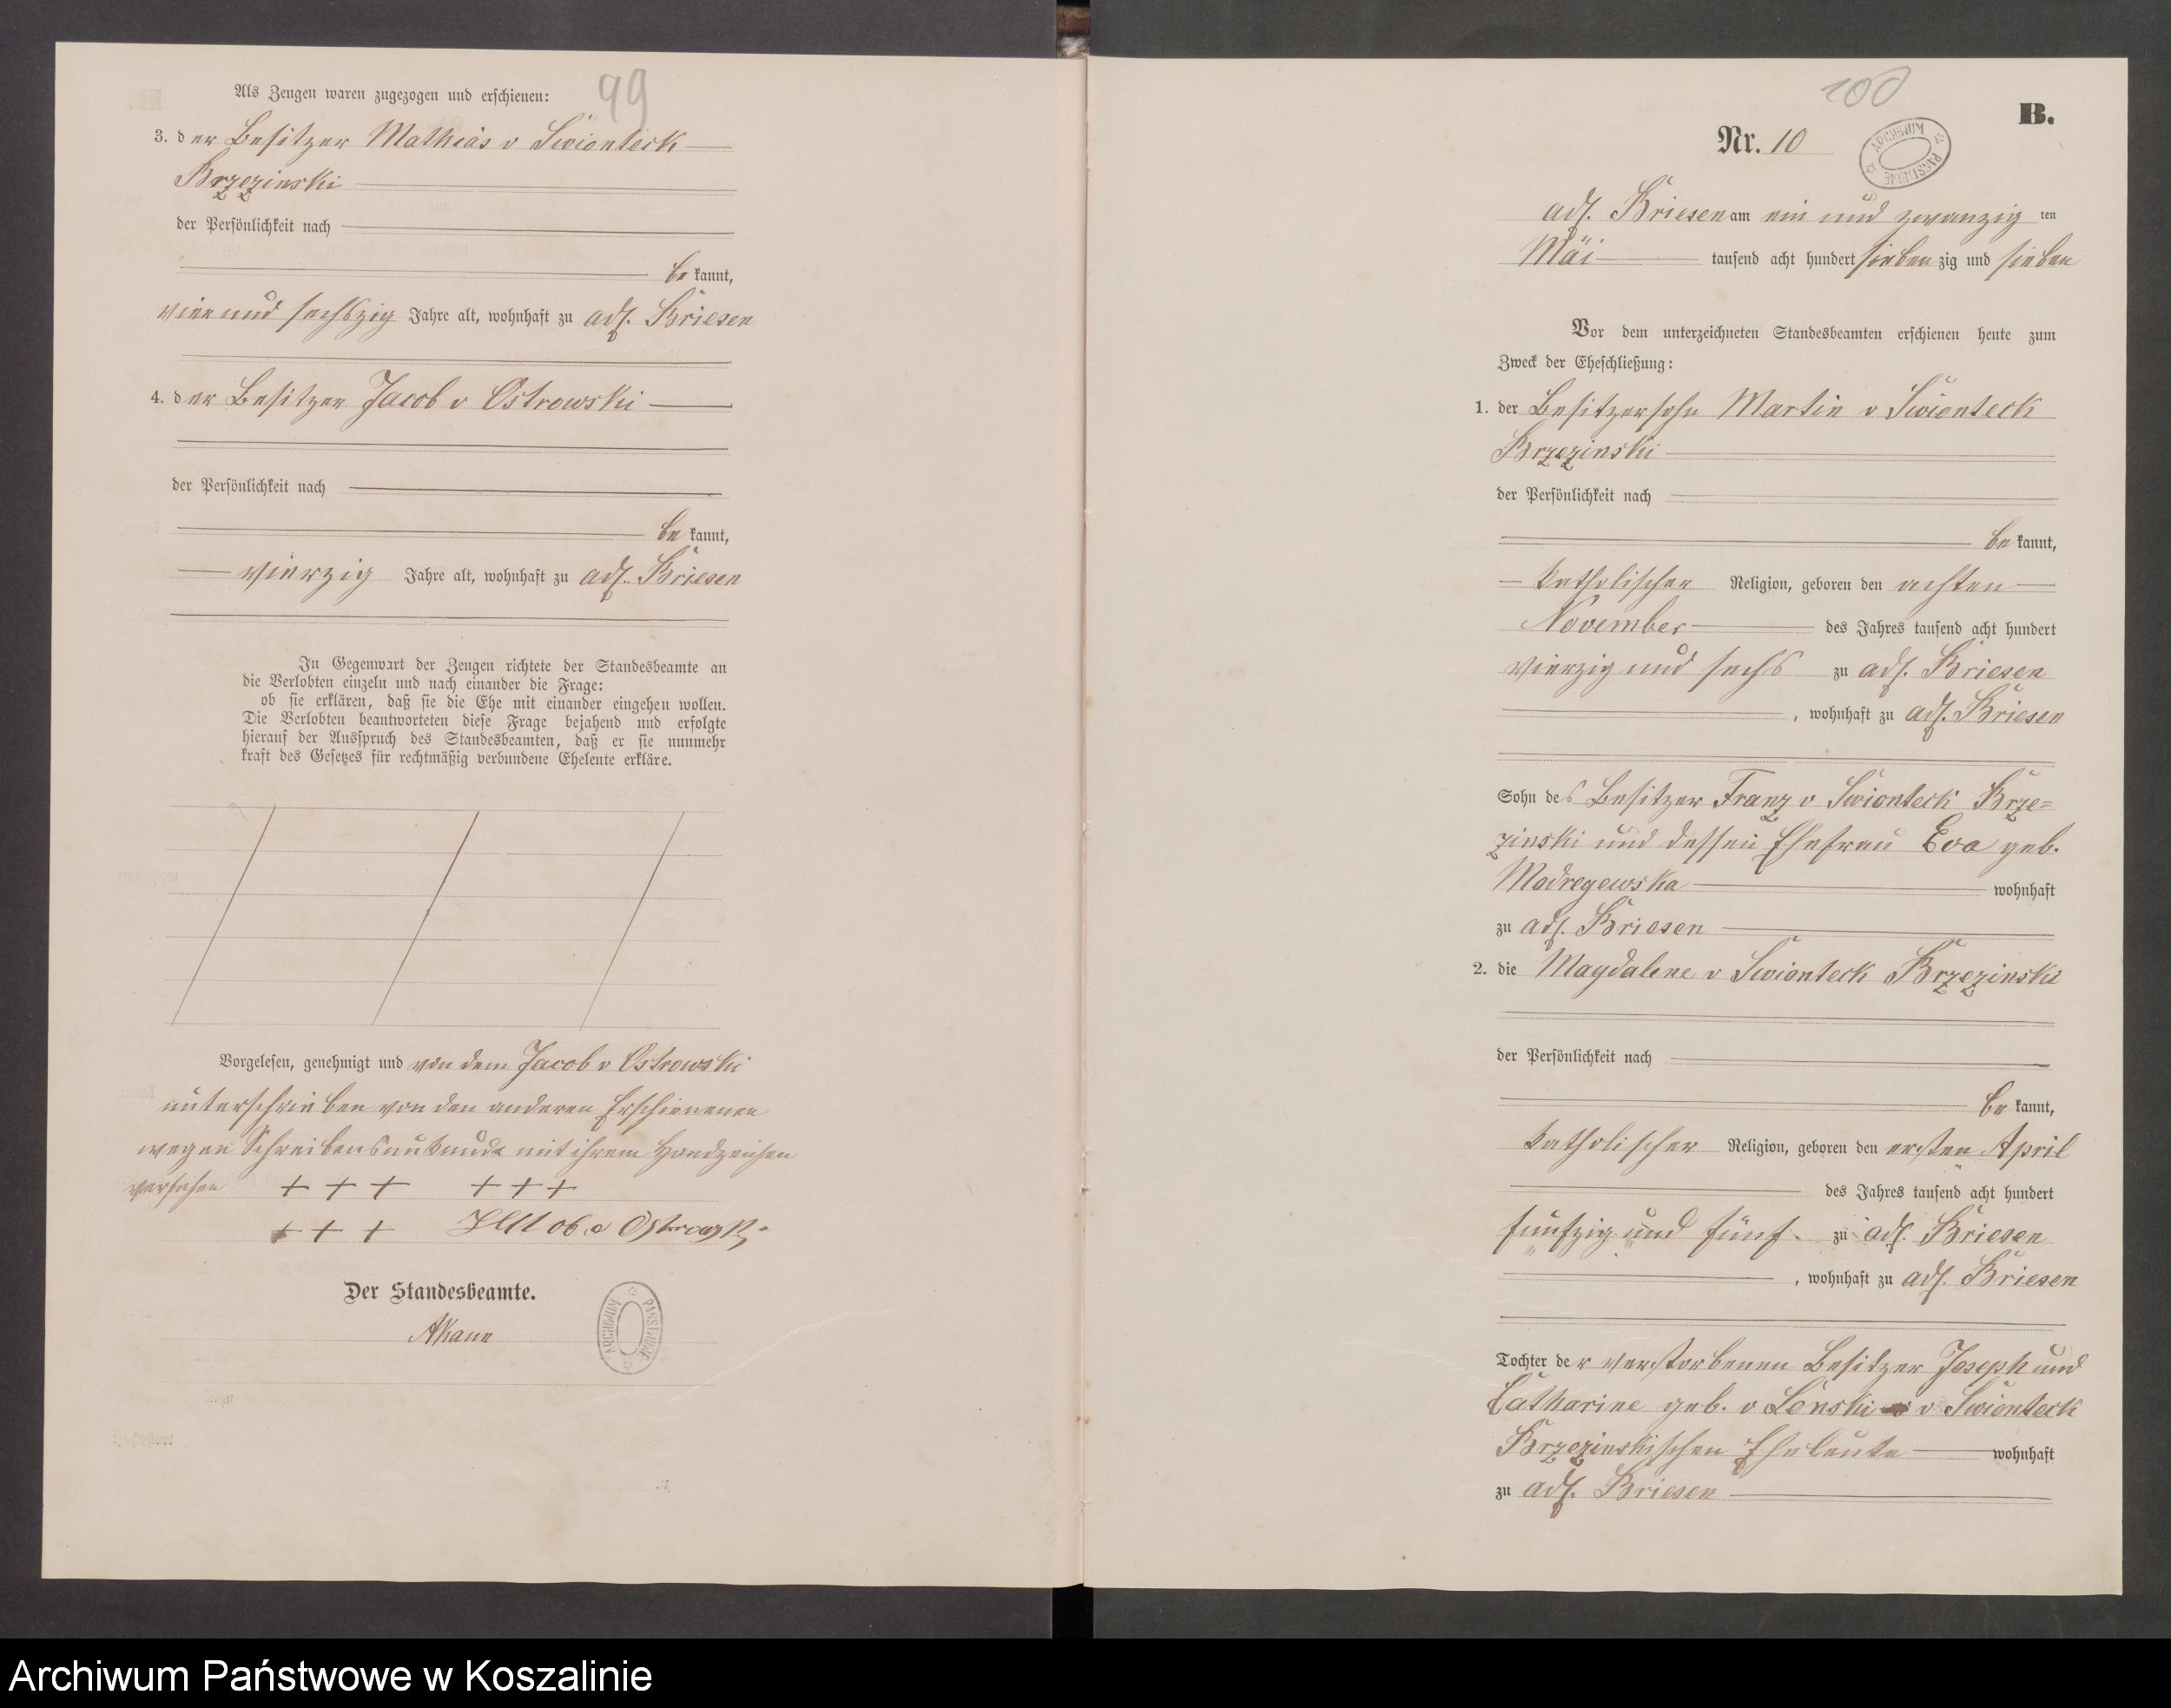 99
Als Zeugen waren zugezogen und erschienen:
3. der Besitzer Mathias v Swionteck
Brzezinski
der Persönlichkeit nach
be kannt,
vier und sechszig Jahre alt, wohnhaft zu adl. Briesen
4. der Besitzer Jacob v Ostrowski
der Persönlichkeit nach
be kannt,
vierzig Jahre alt, wohnhaft zu adl. Briesen
In Gegenwart der Zeugen richtete der Standesbeamte an
die Verlobten einzeln und nach einander die Frage:
ob sie erklären, daß sie die Ehe mit einander eingehen wollen.
Die Verlobten beantworteten diese Frage bejahend und erfolgte
hierauf der Ausspruch des Standesbeamten, daß er sie nunmehr
kraft des Gesetzes für rechtmäßig verbundene Eheleute erkläre.
Vorgelesen, genehmigt und von dem Jacob v Ostrowski
unterschrieben von den anderen Erschienenen
wegen Schreibensunkunde mit ihrem Handzeichen
versehen + + + + + +
+ + + Jacob v Ostrowski
Der Standesbeamte.
ARCHIWUM PAŃSTWOWE
100
B.
Nr. 10
ARCHIWUM PAŃSTWOWE
adl. Briesen am ein und zwanzig ten
Mai tausend acht hundert sieben zig und sieben
Vor dem unterzeichneten Standesbeamten erschienen heute zum
Zweck der Eheschließung:
1. der Besitzersohn Martin v Swionteck
Brzezinski
der Persönlichkeit nach
be kannt,
katholischer Religion, geboren den achten
November des Jahres tausend acht hundert
vierzig und sechs zu adl. Briesen
, wohnhaft zu adl. Briesen
Sohn des Besitzer Franz v Swionteck Brze=
zinski und dessen Ehefrau Eva geb.
Modregewska wohnhaft
zu adl. Briesen
2. die Magdalene v Swionteck Brzezinski
der Persönlichkeit nach
be kannt,
katholischer Religion, geboren den ersten April
des Jahres tausend acht hundert
fünfzig und fünf zu adl. Briesen
, wohnhaft zu adl. Briesen
Tochter der verstorbenen Besitzer Joseph und
Catharine geb. v Lonski v Swionteck
Brzezinskischen Eheleute wohnhaft
zu adl. Briesen
Archiwum Państwowe w Koszalinie